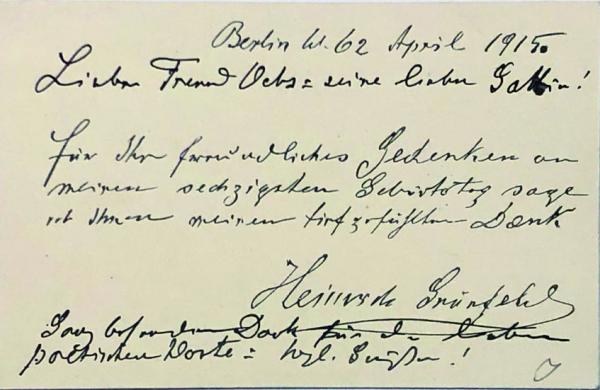 Berlin W. 62 April 1915.
Lieber Freund Ochs = seine liebe Gattin!
Für Ihr freundliches Gedenken an
meinen sechzigsten Geburtstag sage
ich Ihnen meinen tiefgefühlten Dank
Heinrich Grünfeld
Ganz besonderen Dank für die lieben
poetischen Worte = hzgl. Grüßen!